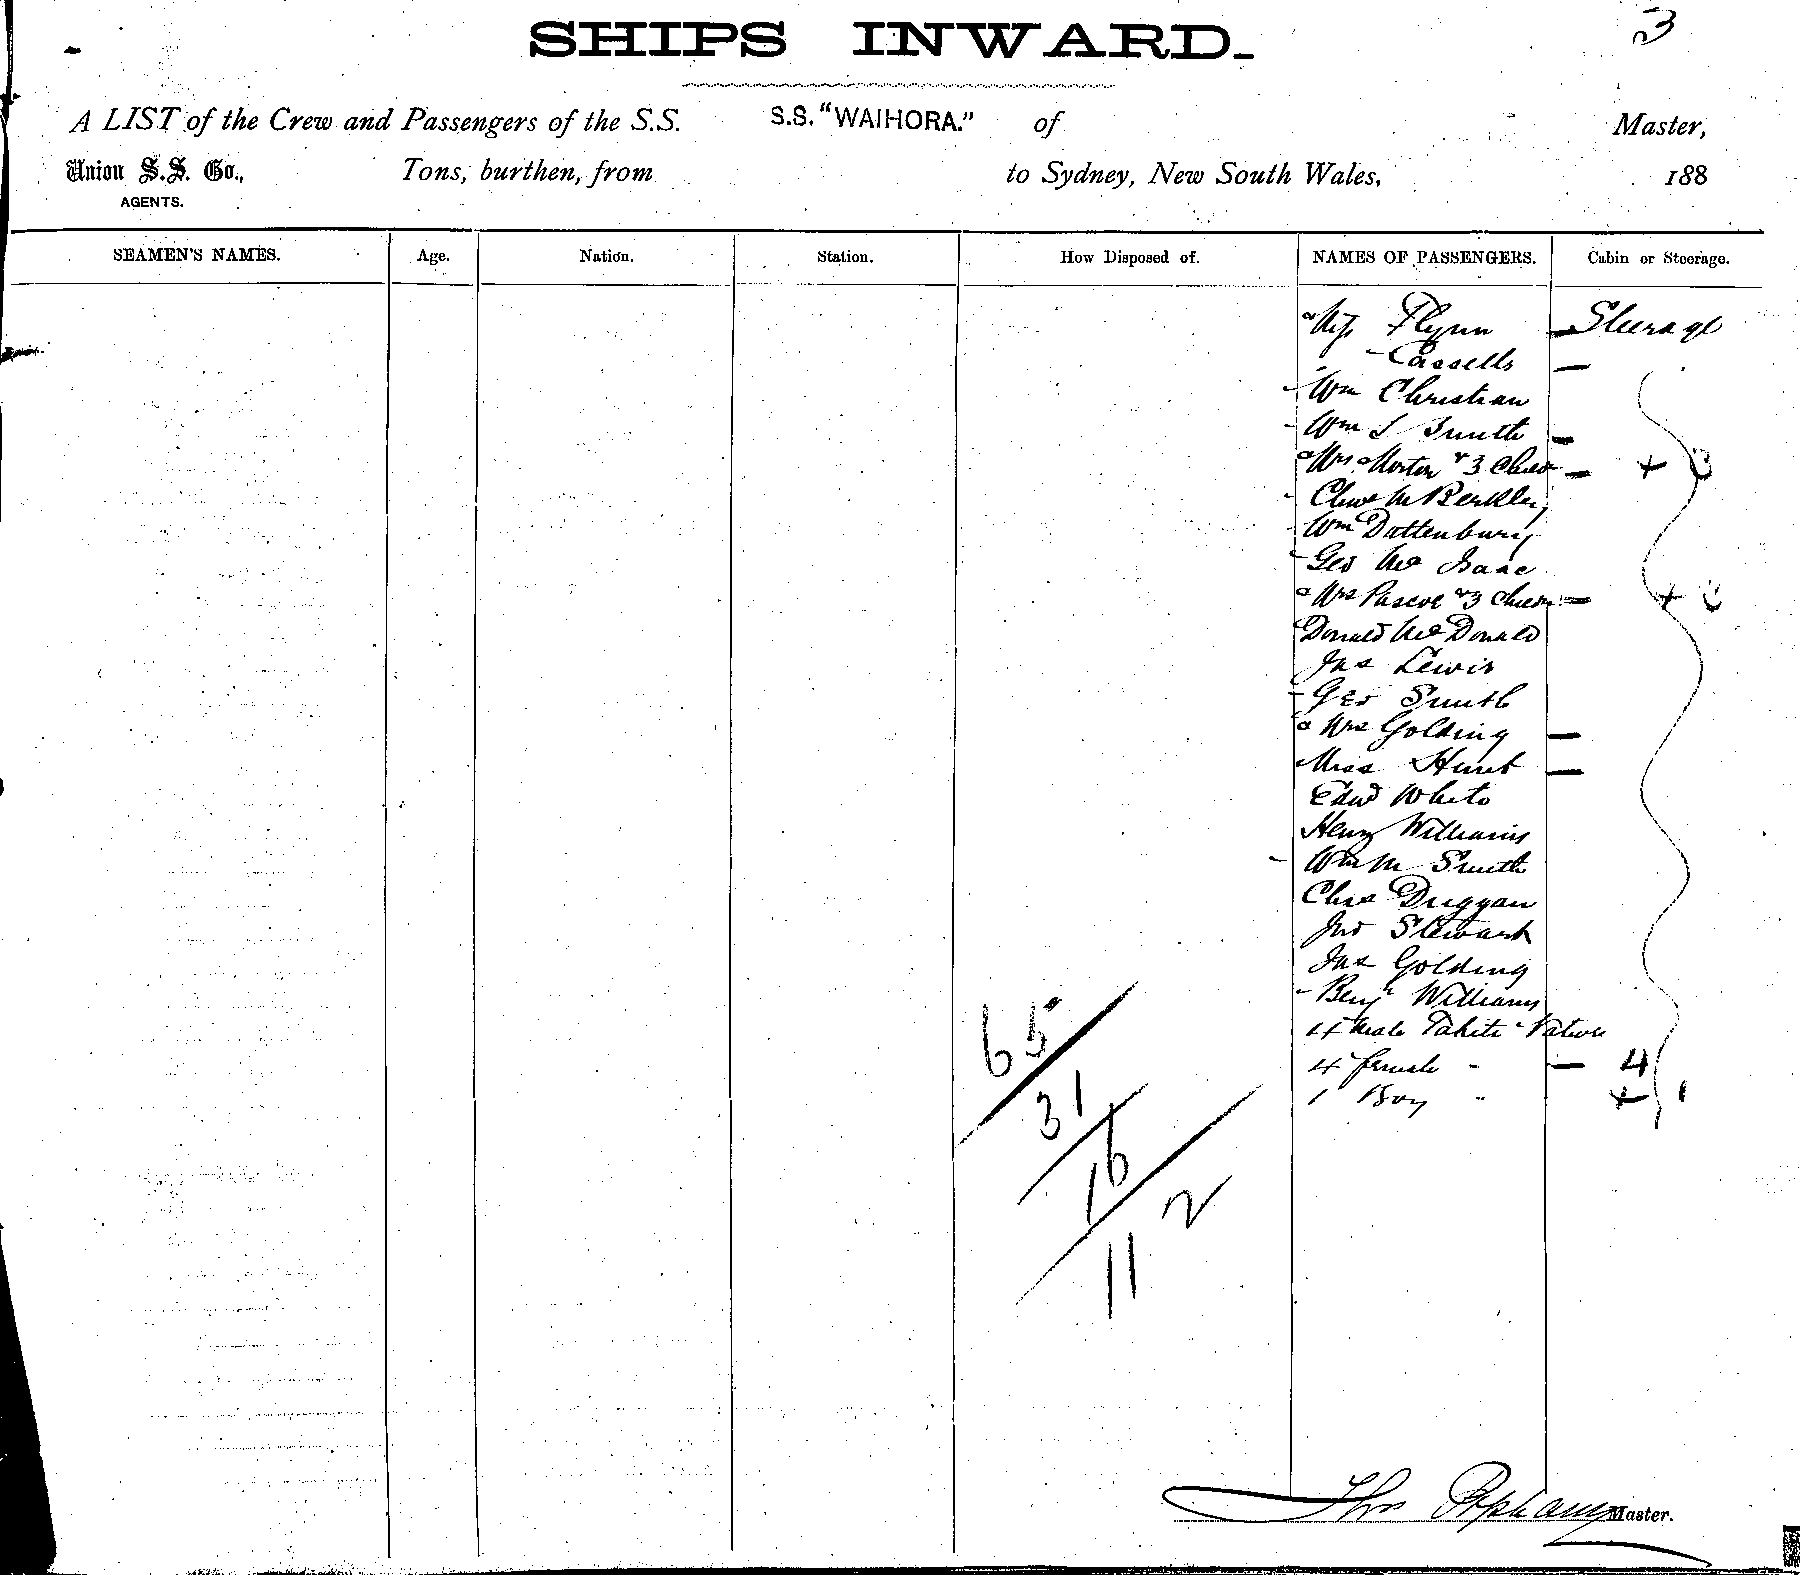 3
SHIPS INWARD.
A LIST of the Crew and Passengers of the S.S. S.S. "WAIHORA." of Master,
Union S.S. Co., Tons, burthen, from to Sydney, New South Wales, 188
AGENTS.
SEAMEN'S NAMES. Age. Nation. Station. How Disposed of. NAMES OF PASSENGERS. Cabin or Steerage.
Flynn Steerage
" Cassells
Wm Christian
Wm S Smith
Mrs Morton & 3 Chldn + 3
M Berkley
Wm Dattenbury
Geo Mc Isaac
Mrs Pascoe & 3 Chldn + 3
Donald McDonald
Jas Lewis
Geo Smith
Mrs Golding
Miss Hunt
Edwd White
Henry Williams
Wm M Smith
Chas Duggan
Jno Stewart
Jas Golding
Benj Williams
4 Male Tahiti Natives
4 female " 4
1 Boy " + 1
65
31
16
11 2
Thos Master.